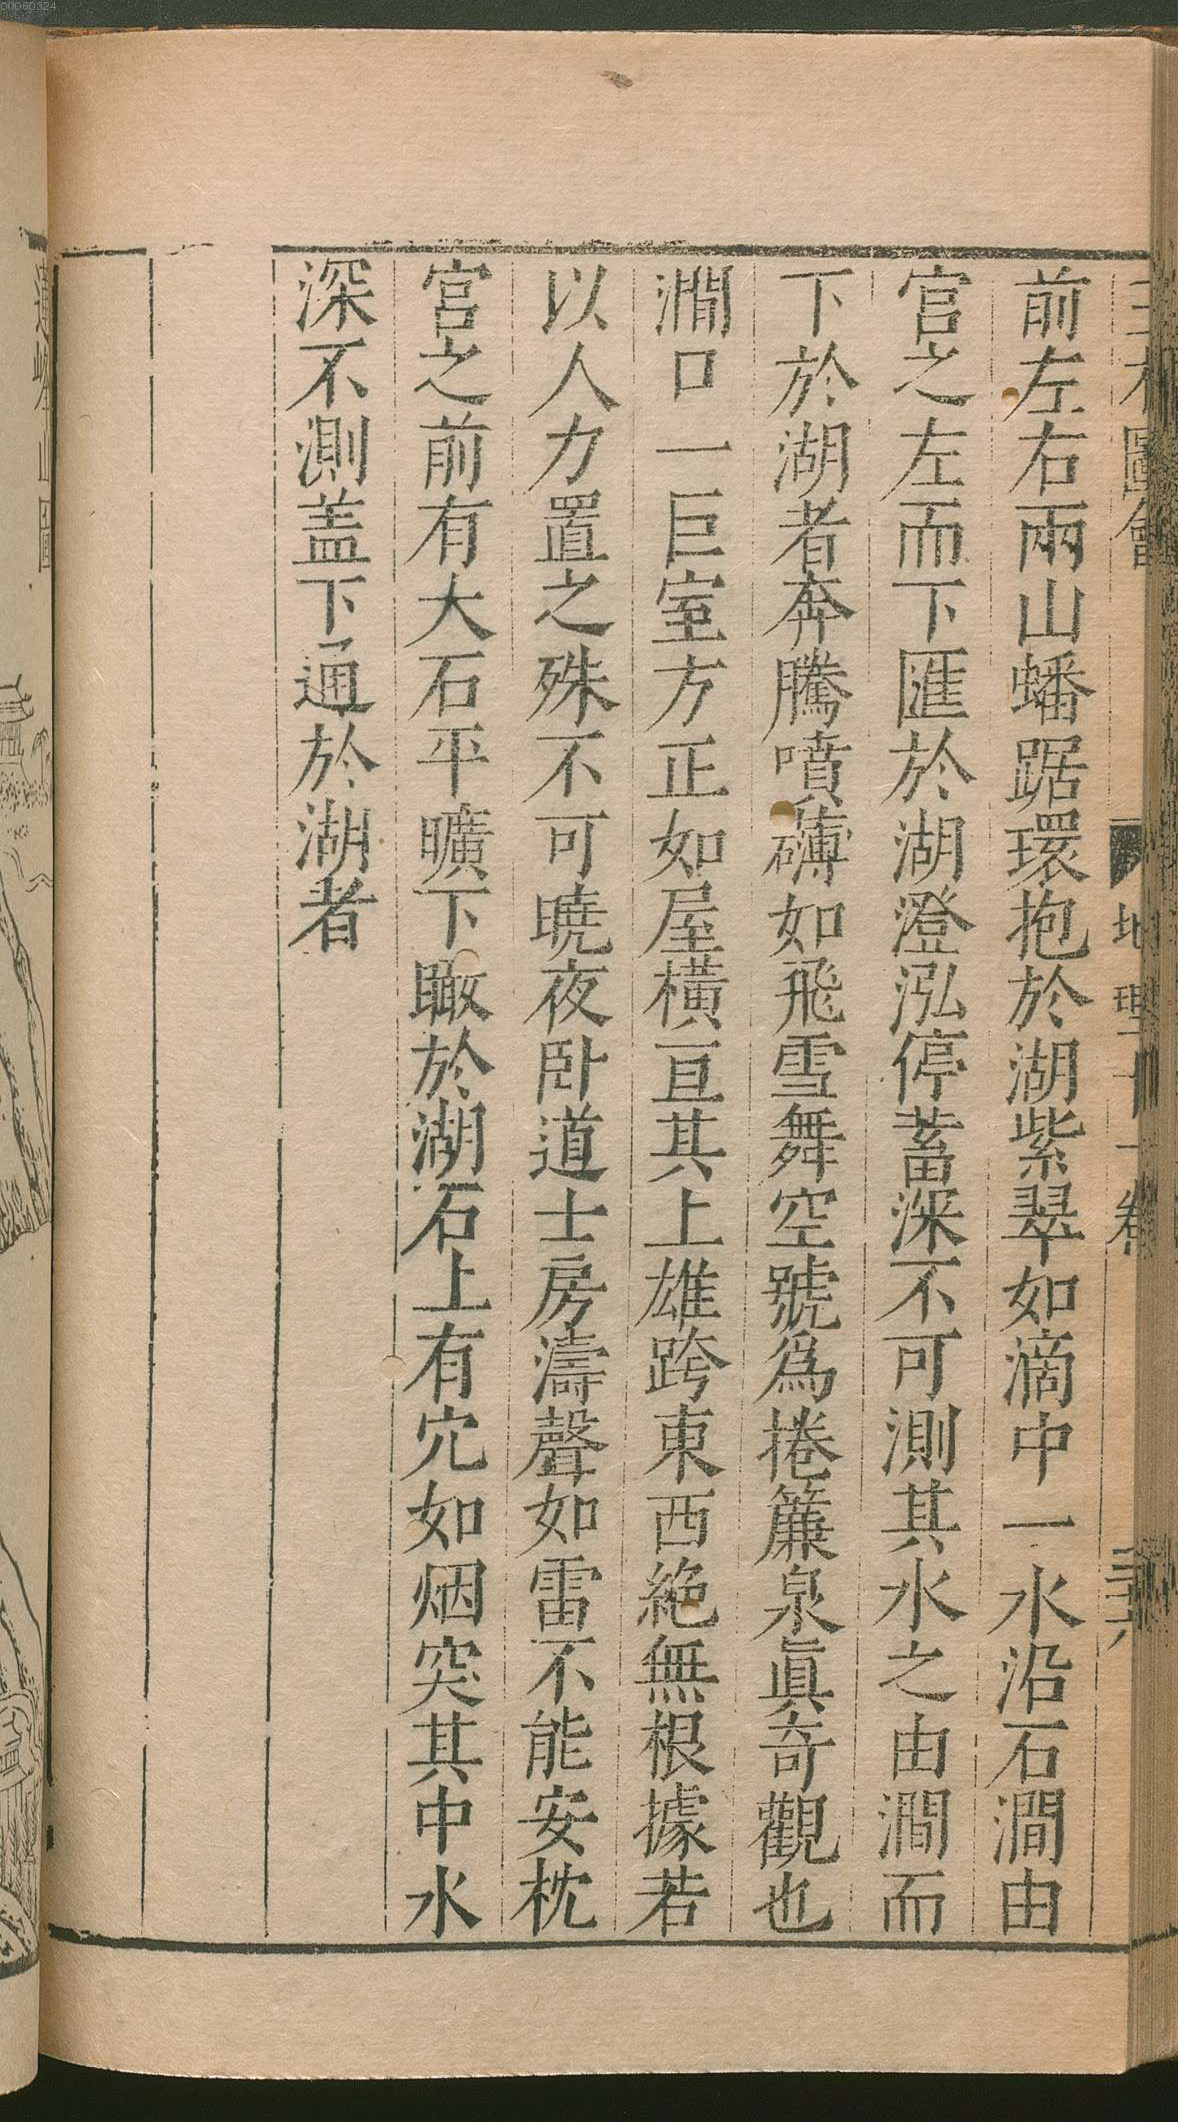 00060324
三才圖會 地理十一卷 三六
前左右兩山蟠踞環抱於湖紫翠如滴中一水沿石澗由
宮之左而下匯於湖澄泓停蓄深不可測其水之由澗而
下於湖者奔騰噴礴如飛雪舞空號為捲簾泉眞奇觀也
澗口一巨室方正如屋橫亘其上雄跨東西絶無根據若
以人力置之殊不可曉夜卧道士房濤聲如雷不能安枕
宮之前有大石平曠下瞰於湖石上有穴如烟突其中水
深不測盖下通於湖者